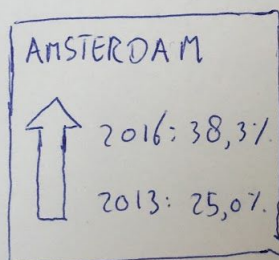 AMSTERDAM
2016: 38,3%
2013: 25,0%